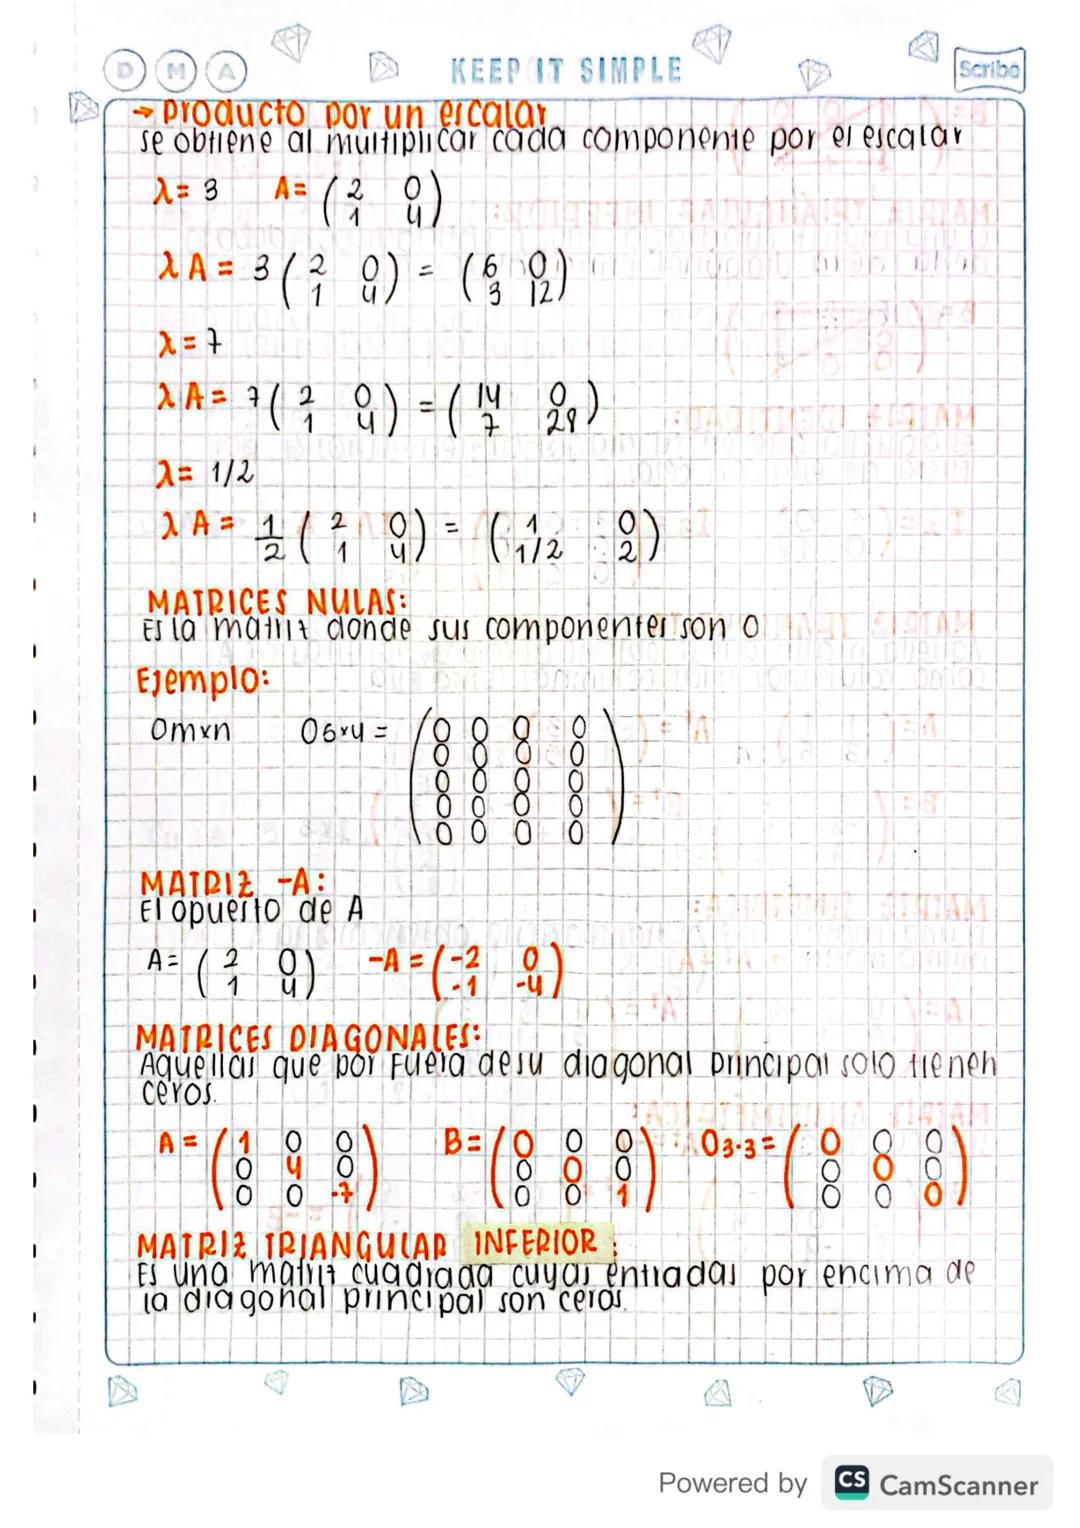 D M A KEEP IT SIMPLE Scribe
→ Producto por un escalar
se obtiene al multiplicar cada componente por el escalar
λ= 3 A= ( 2 0
1 4 )
λ A = 3 ( 2 0
1 4 ) = ( 6 0
3 12 )
λ = 7
λ A = 7 ( 2 0
1 4 ) = ( 14 0
7 28 )
λ = 1/2
λ A = 1/2 ( 2 0
1 4 ) = ( 1 0
1/2 2 )
MATRICES NULAS:
Es la matriz donde sus componentes son 0
Ejemplo:
0mxn 06x4 = ( 0 0 0 0
0 0 0 0
0 0 0 0
0 0 0 0
0 0 0 0 )
MATRIZ -A:
El opuesto de A
A= ( 2 0
1 4 ) -A = ( -2 0
-1 -4 )
MATRICES DIAGONALES:
Aquellas que por Fuera de su diagonal principal solo tienen
ceros.
A = ( 1 0 0
0 4 0
0 0 -7 ) B= ( 0 0 0
0 0 0
0 0 1 ) 03·3 = ( 0 0 0
0 0 0
0 0 0 )
MATRIZ TRIANGULAR INFERIOR :
Es una matriz cuadrada cuyas entradas por encima de
la diagonal principal son ceros.
Powered by CS CamScanner